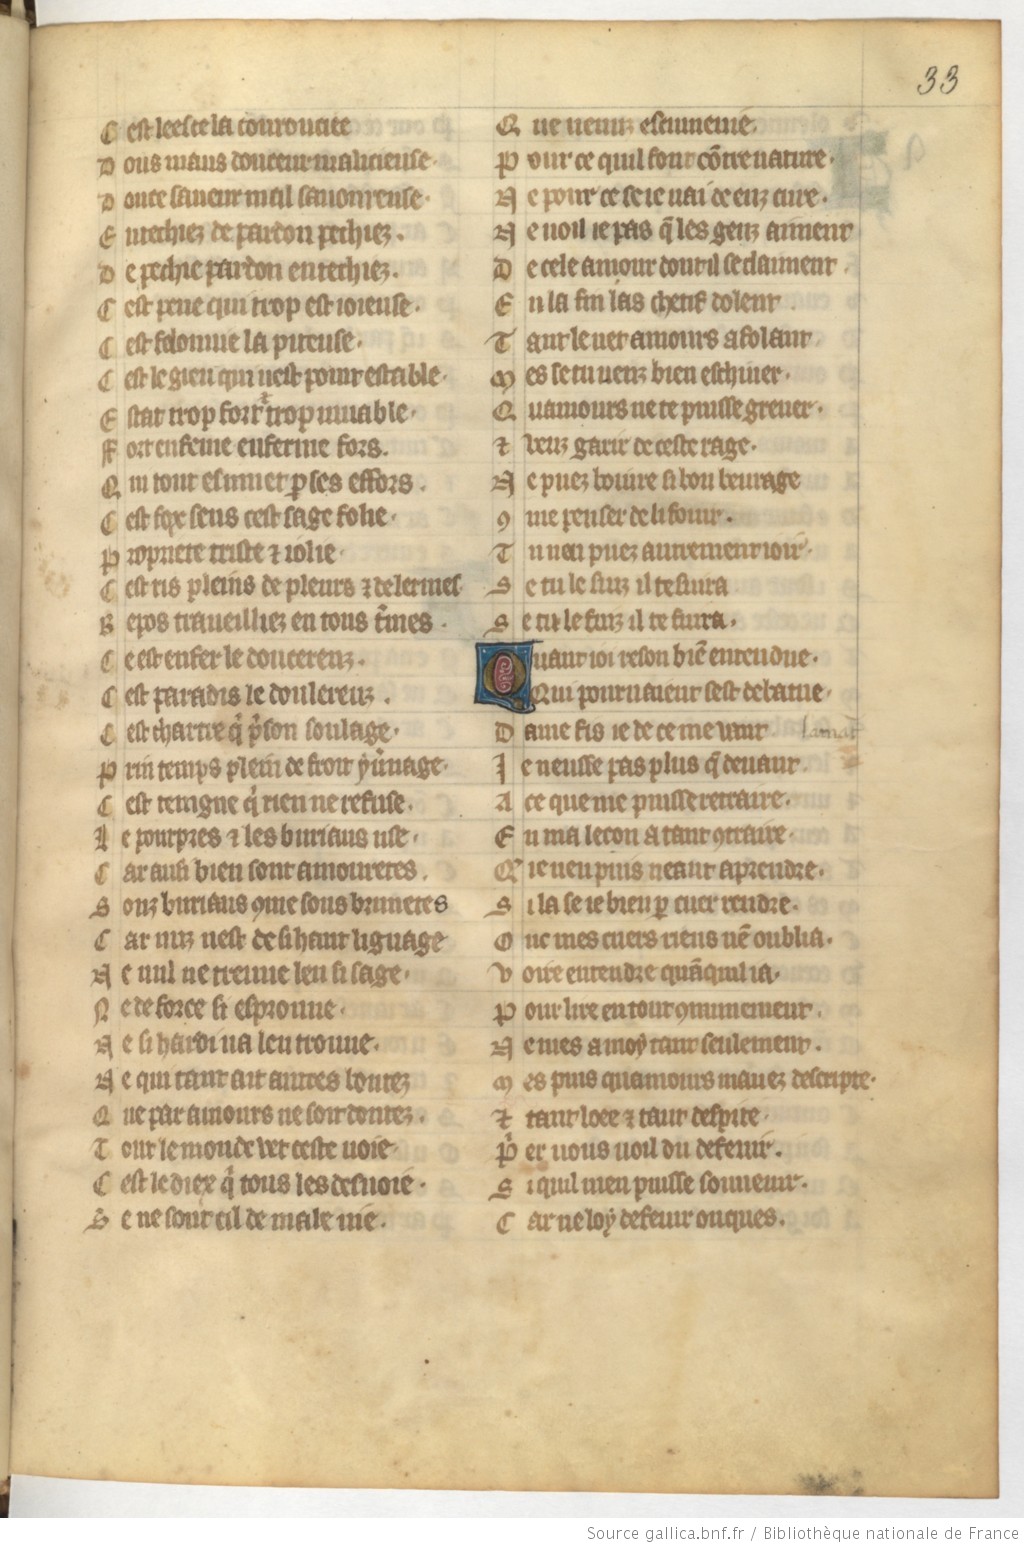 33
C est leesce la couroucite
D ous maus douceur malicieuse.
D ouce saveur mal savoureuse.
E ntechiez de pardon pechiez.
D e pechie pardon entechiez.
C est peine qui trop est ioieuse.
C est felonnie la piteuse.
C est le gieu qui nest point estable.
E stat trop fort ⁊ trop muable.
F ort enferme enferme fors.
Q ui tout esmuet ꝑ ses effors.
C est fox sens cest sage folie.
P roprete triste ⁊ iolie.
C est ris pleins de pleurs ⁊ de lermes
R epos traveilliez en tous t̃mes.
C e est enfer le doucerenz.
C est paradis le doulereuz.
C est chartre q̃ p̃son soulage.
P rin temps plein de froit yũnage.
C est teingne q̃ rien ne refuse.
L e pourpres ⁊ les buriaus use.
C ar ausi bien sont amouretes.
S onz buriaus 9me sous brunetes
C ar nuz nest de si haut lignage
N e nul ne treuve len si sage.
N e de force si esprouve.
N e si hardi na len trouve.
N e qui tant ait autres bontez
Q ue par amours ne soit dontez.
T out le monde vet ceste voie.
C est le diex q̃ tous les desvoie.
S e ne sont cil de male vie.
Q ue venuz escumenie.
P our ce quil font cõtre nature.
N e pour ce se ie nai de euz cure.
N e voil ie pas q̃ les genz aiment
D e cele amour dont il se claiment.
E n la fin las chetif dolent
T ant le vet amours afolant.
M es se tu veuz bien eschiver.
Q uamours ne te puisse grever.
⁊ veuz garir de ceste rage.
N e puez boivre si bon beurage
9 me penser de li fouir.
T u nen puez autrement ioir.
S e tu le suiz il te siura
S e tu le fuiz il te fuira.
Quant ioi reson biẽ entendue.
Qui pour naient sest debatue.
D ame fis ie de ce me vant
lamant
I e neusse pas plus q̃ devant.
A ce que me puisse retraire.
E n ma lecon a tant 9traire.
Q ie nen puis neant aprendre.
S i la se ie bien ꝑ cuer rendre.
O nc mes cuers riens nẽ oublia.
V oire entendre quãquil ia.
P our lire en tout 9munement.
N e mes a moy tant seulement.
M es puis quamours mavez descripte.
⁊ tant loee ⁊ tant despite.
P̃ er vous voil du defenir.
S i quil men puisse souvenir.
C ar ne loy defenir onques.
Source gallica.bnf.fr / Bibliothèque nationale de France